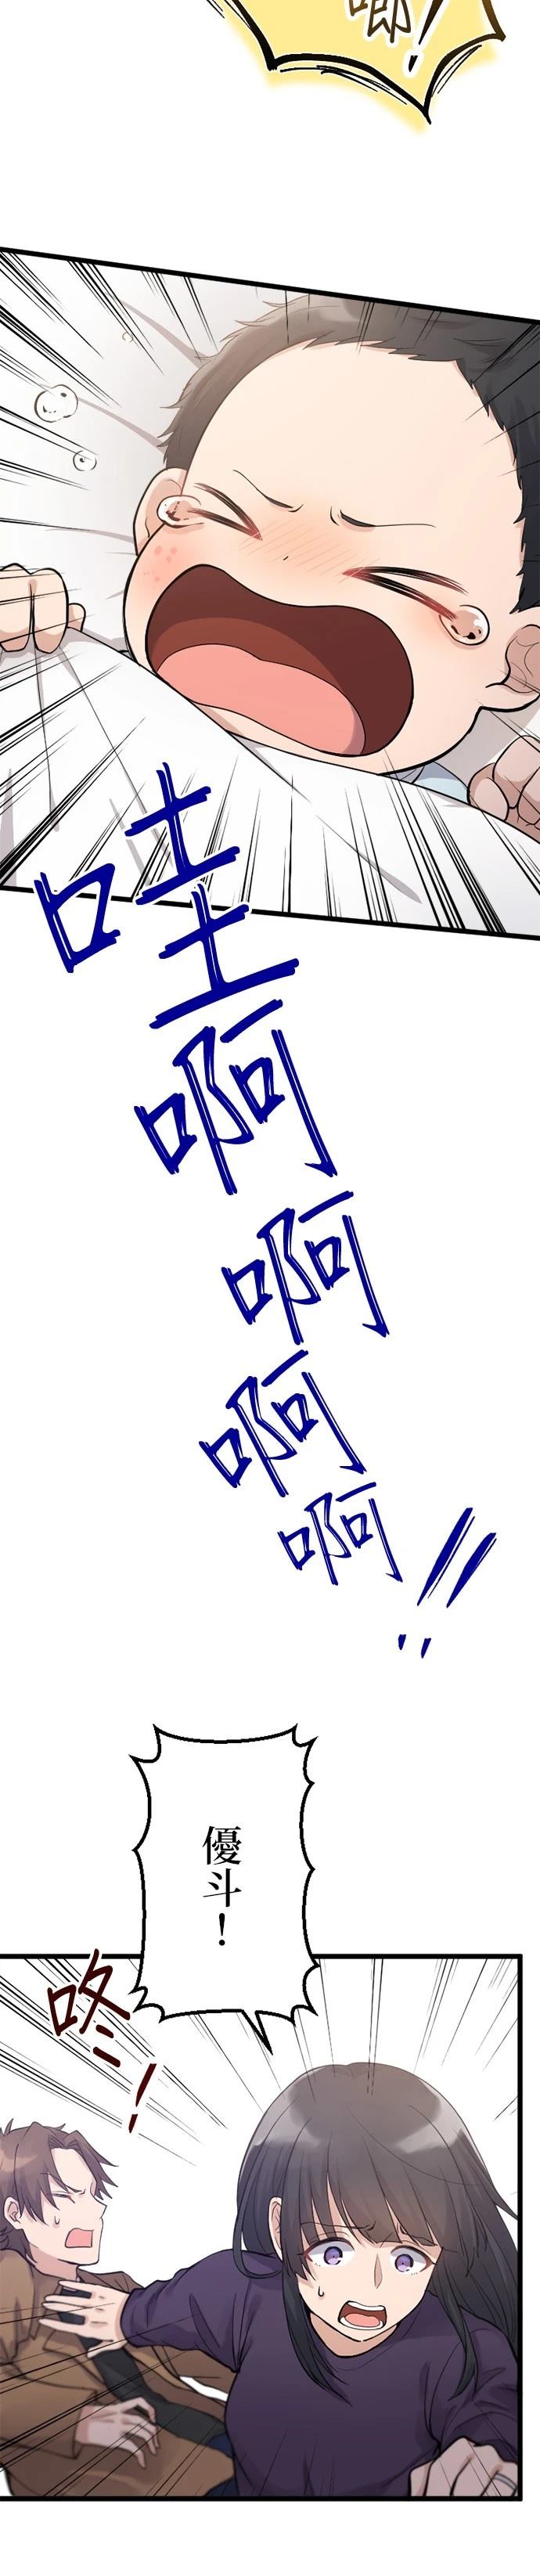 唧！
哇啊啊啊啊！！
優斗！
咚！